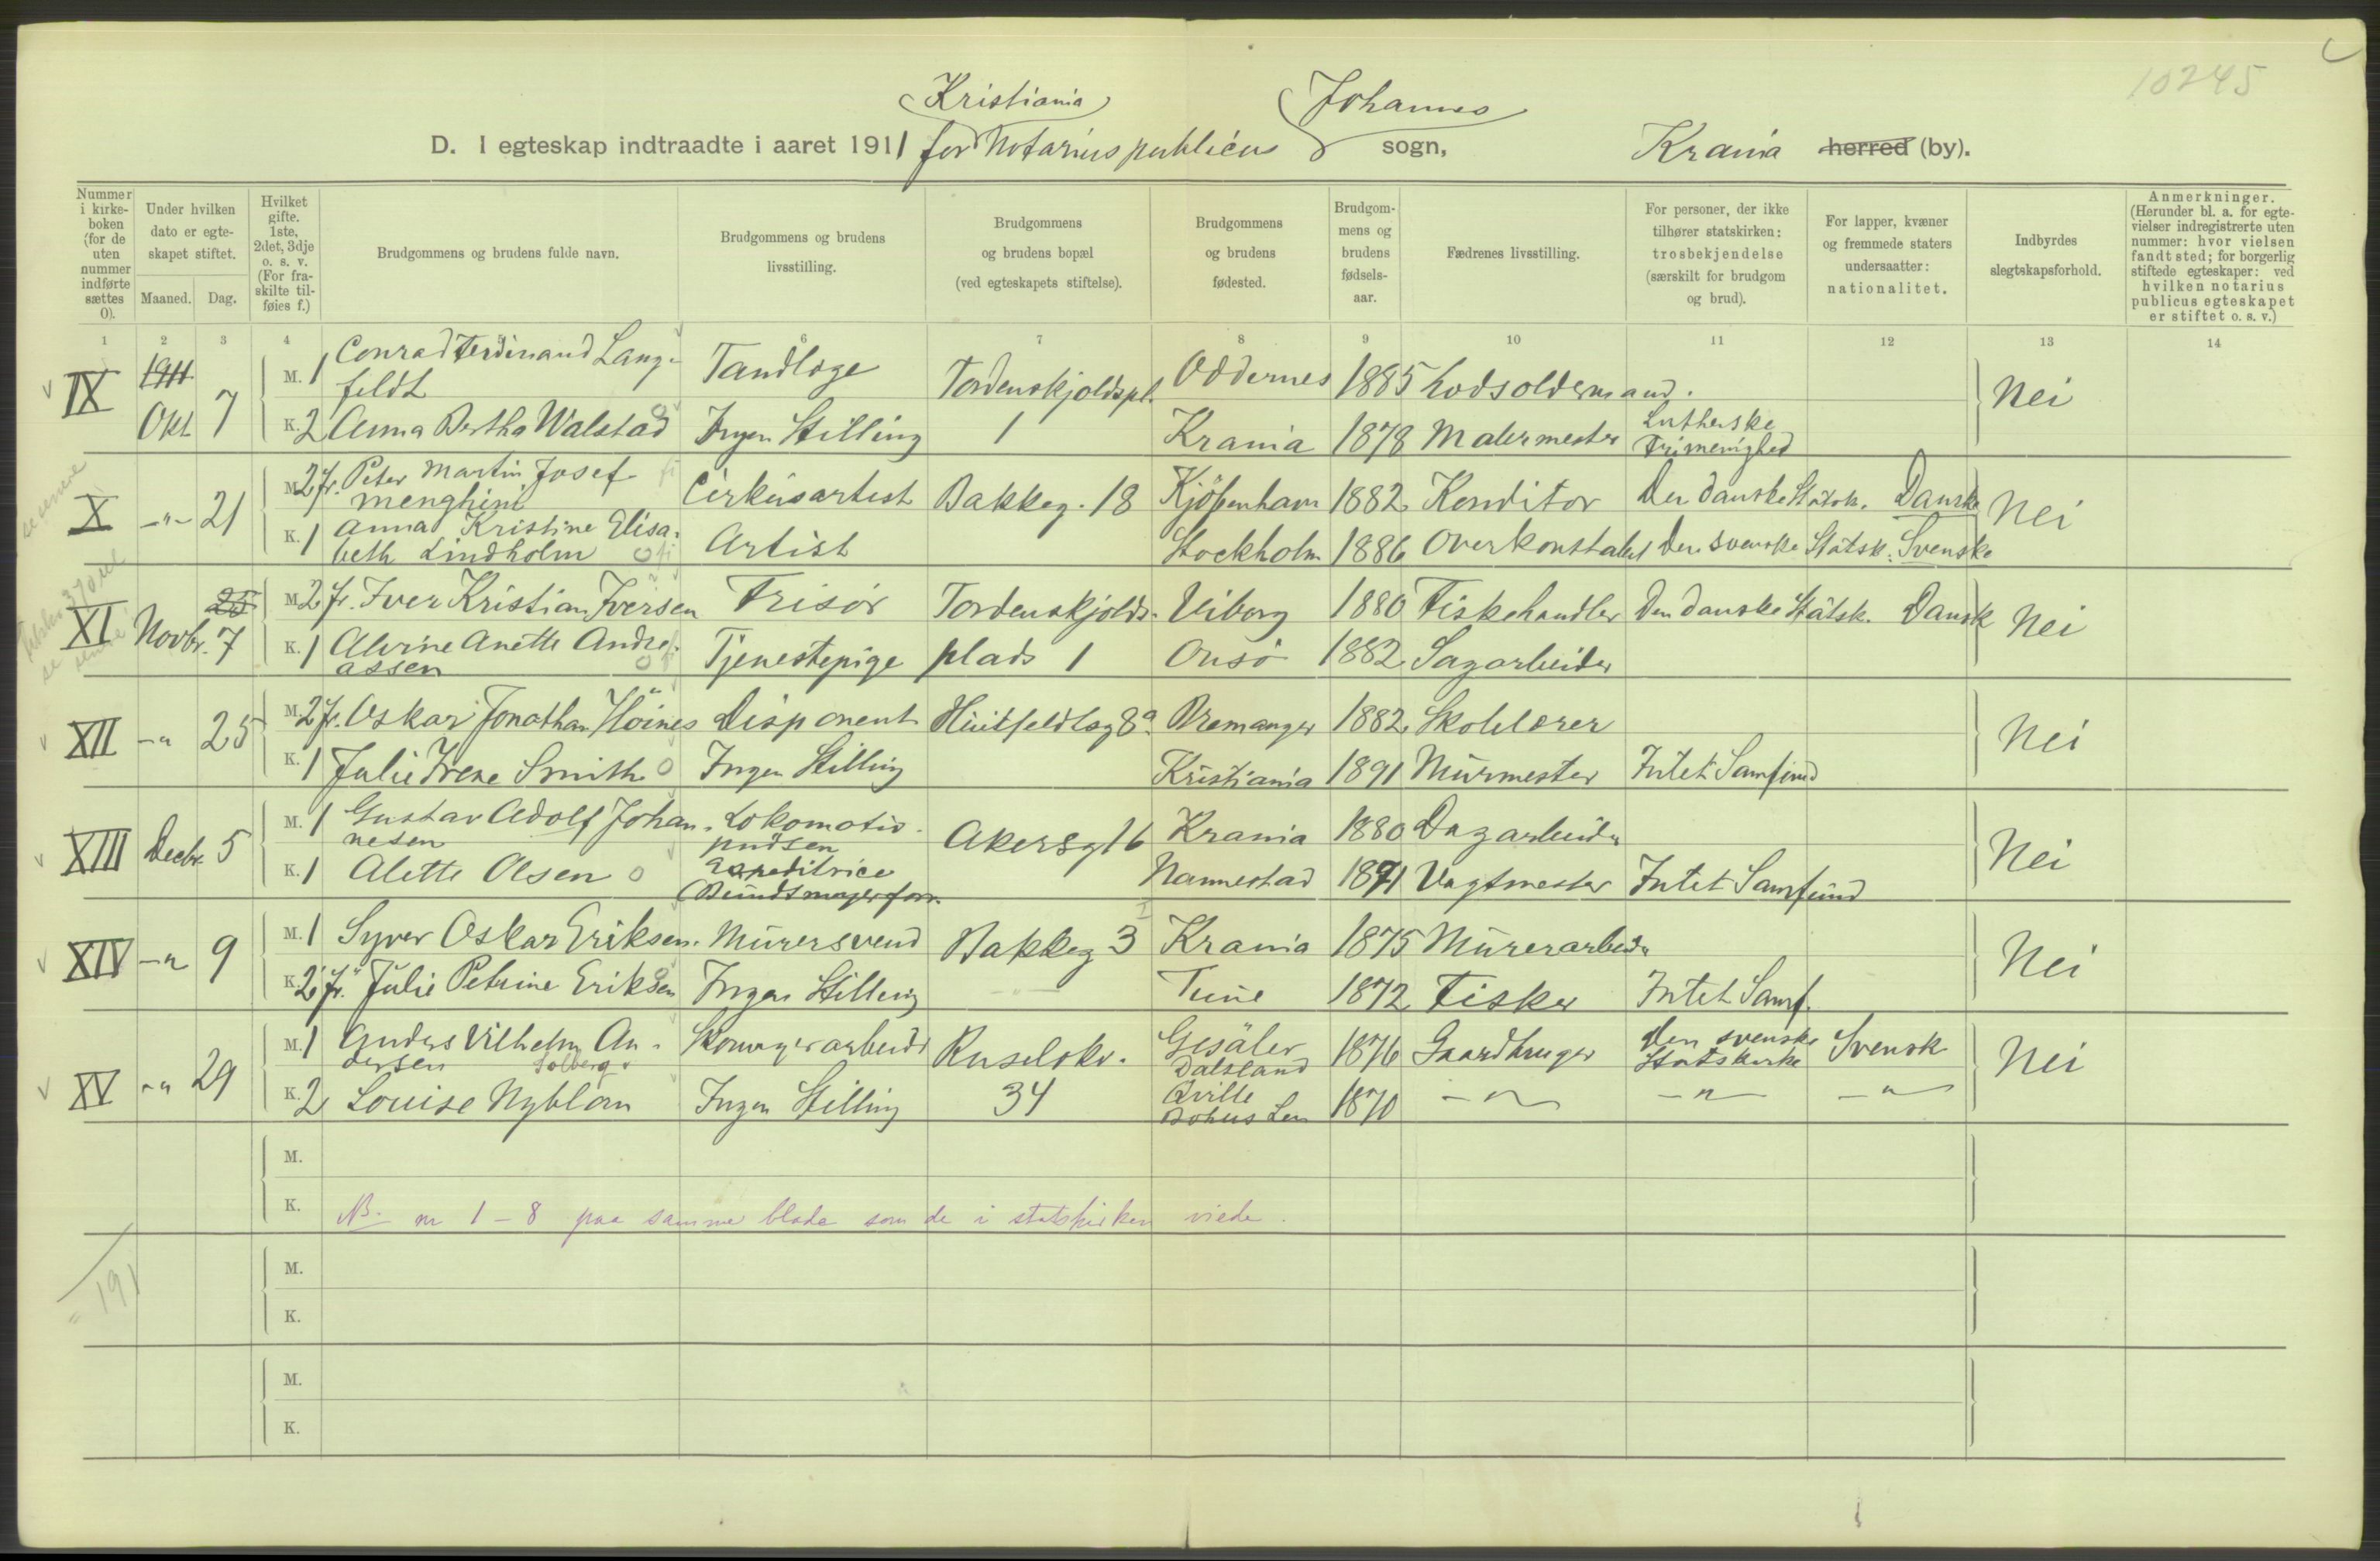 10245
Kristiania Johannes
D. I egteskap indtraadte i aaret 1911 for Notarius publicus sogn, Krania herred (by).
Nummer i kirkeboken (for de uten nummer indførte sættes 0).
Under hvilken dato er egteskapet stiftet.
Maaned. Dag.
Hvilket gifte. 1ste, 2det, 3dje o. s. v. (For fraskilte tilføies f.)
Brudgommens og brudens fulde navn.
Brudgommens og brudens livsstilling.
Brudgommens og brudens bopæl (ved egteskapets stiftelse).
Brudgommens og brudens fødested.
Brudgommens og brudens fødselsaar.
Fædrenes livsstilling.
For personer, der ikke tilhører statskirken: trosbekjendelse (særskilt for brudgom og brud).
For lapper, kvæner og fremmede staters undersaatter: nationalitet.
Indbyrdes slegtskapsforhold.
Anmerkninger. (Herunder bl. a. for egtevielser indregistrerte uten nummer: hvor vielsen fandt sted; for borgerlig stiftede egteskaper: ved hvilken notarius publicus egteskapet er stiftet o. s. v.)
1 2 3 4 6 7 8 9 10 11 12 13 14
IX 1911 Okt 7 M. 1 Conrad Ferdinand Langfeldt Tandlæge Tordenskjoldspl. 1 Oddernes 1885 Lodsoldermand. Nei
K. 2 Anna Bertha Walstad Ingen Stilling Krania 1878 Malermester Lutherske Frimenighed
X -"- 21 M. 2 f. Peter Martin Josef Menghini Cirkusartist Bakkeg. 18 Kjöbenham 1882 Konditor Den danske Statsk. Danske Nei
K. 1 Anna Kristine Elisabeth Lindholm Artist Stockholm 1886 Overkonstabel Den svenske Statsk. Svenske
XI Novbr. 25 7 M. 2 f. Iver Kristian Iversen Frisör Tordenskjolds- Viborg 1880 Fiskehandler Den danske Statsk. Dansk Nei
K. 1 Alvine Anette Andreassen Tjenestepige plads 1 Onsö 1882 Sagarbeider
XII -"- 25 M. 2 f. Oskar Jonathan Höines Disponent Huitfeldtsg 8a Bremanger 1882 Skolelærer Nei
K. 1 Julie Irene Smith Ingen Stilling Kristiania 1891 Murmester Intet Samfund
XIII Decbr. 5 M. 1 Gustav Adolf Johannesen Lokomotivpudsen Akersg 16 Krania 1880 Dagarbeider Nei
K. 1 Alette Olsen Expeditrice (Bundtmagerforr. Nannestad 1871 Vagtmester Intet Samfund
XIV -"- 9 M. 1 Syver Oskar Eriksen Murersvend Bakkeg 3 Krania 1875 Murerarbeider Nei
K. 2 f. Julie Petrine Eriksen Ingen Stilling -"- Tune 1872 Fisker Intet Samf.
XV -"- 29 M. 1 Anders Vilhelm Andersen Solberg Ruselokv. 34 Dalsland 1876 Gaardbruger den svenske Statskirke Svensk Nei
K. 2 Louise Nyblom Ingen Stilling Qville Bohus Len 1870 -"- -"- -"-
M.
K.
NB. nr 1 - 8 paa samme blade som de i statskirken viede.
191
M.
K.
M.
K.